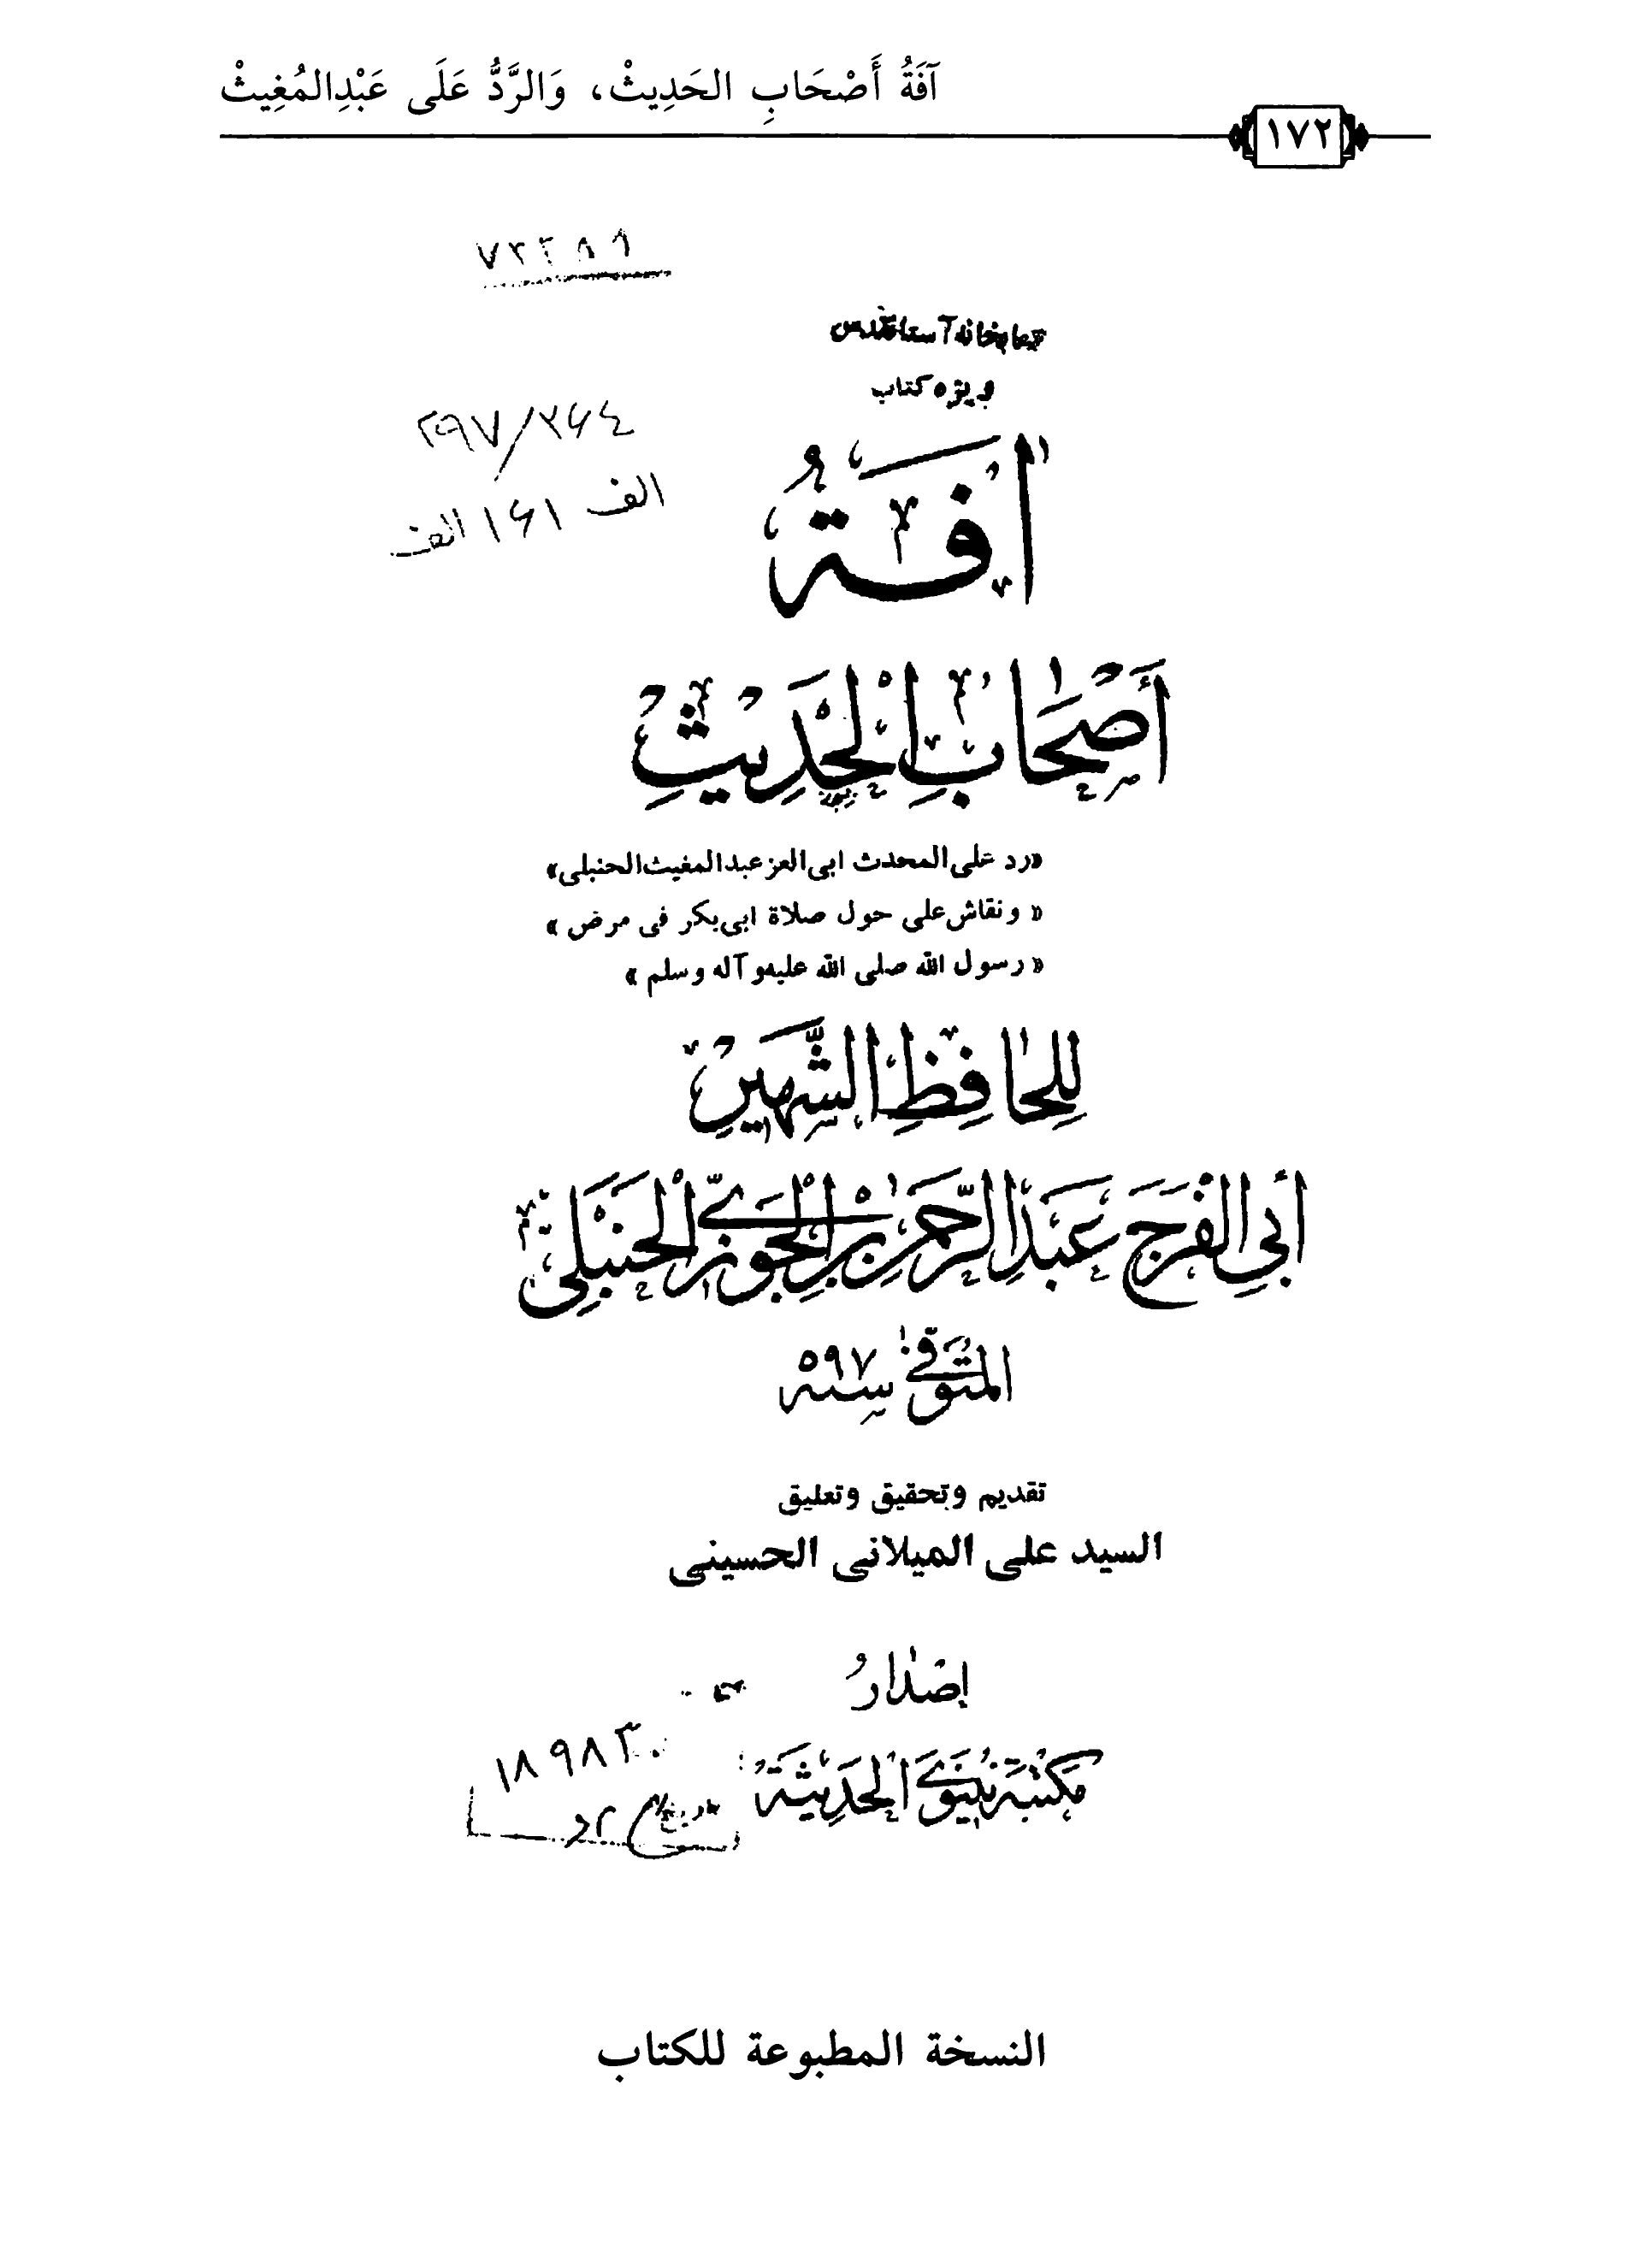 آفَةُ أَصْحَابِ الحَدِيثْ، وَالرَّدُّ عَلَى عَبْدِالمُغِيثْ
١٧٢
کتابخانه آستانقدس
ویژه کتاب
٢٩٧/٣۶٤
الف ١۶١ الف
آفَةُ
أَصْحَابِ الْحَدِيْثِ
«رد علی المحدث ابی‌العز عبدالمغیث الحنبلی»
« ونقاش علی حول صلاة ابی‌بکر فی مرض »
« رسول الله صلی الله علیه‌وآله وسلم »
لِلْحَافِظِ الشَّهِيْرِ
أَبِي الْفَرَجِ عَبْدِ الرَّحْمٰنِ بْنِ الْجَوْزِيِّ الْحَنْبَلِي
المُتَوَفّٰى سِنَه ٥٩٧
تقدیم وتحقیق وتعلیق
السید علی المیلانی الحسینی
إصْدَارُ
١٨٩٨٣٠
مَكْتَبَة نَيْنَوَى الْحَدِيْثَة
النسخة المطبوعة للكتاب